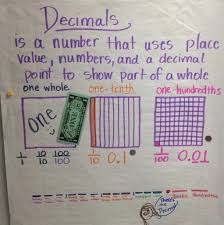 Decimals
is a number that uses place
value, numbers, and a decimal
point to show part of a whole
one whole one-tenth one-hundredths
one
1/1 10/10 100/100 1/10 0.1 1/100 0.01